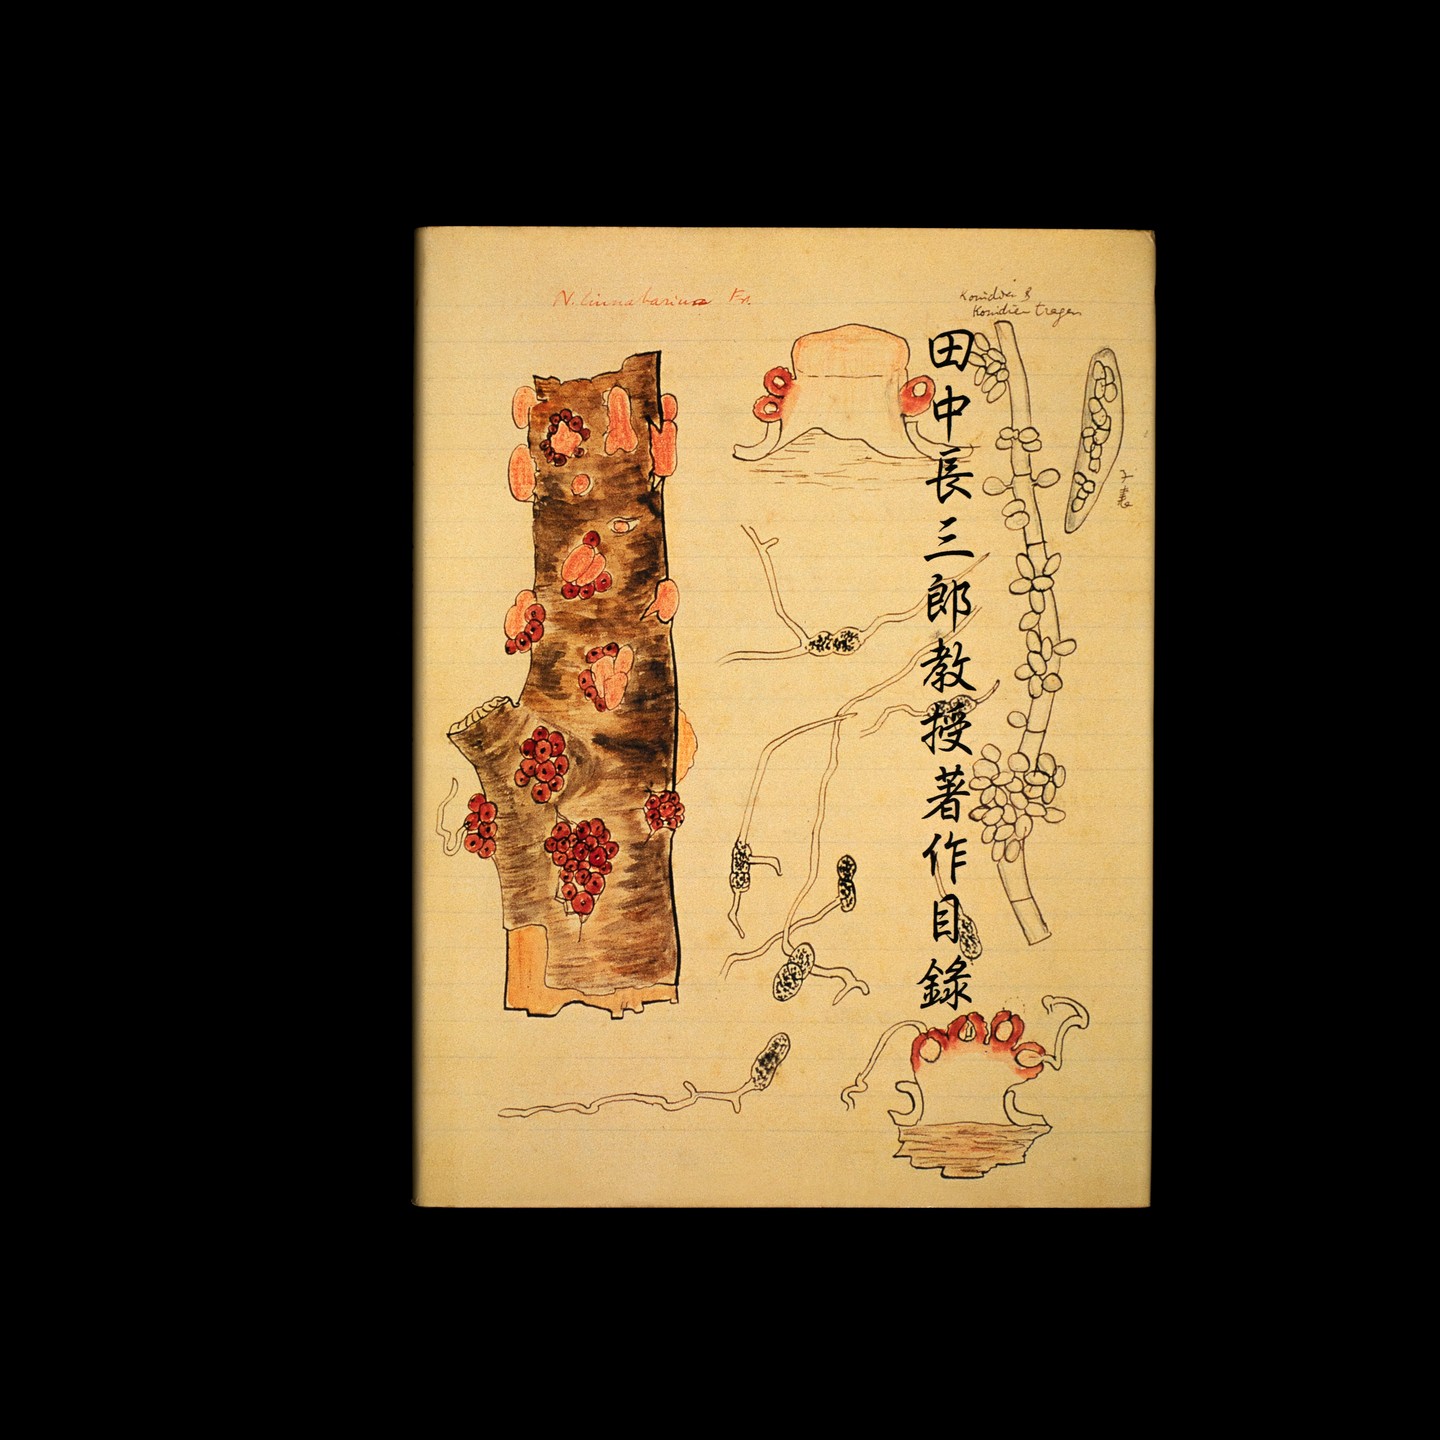 N. Cinnabarina Fr.
Konidien &
Konidien tragen
田中長三郎教授著作目錄
子囊